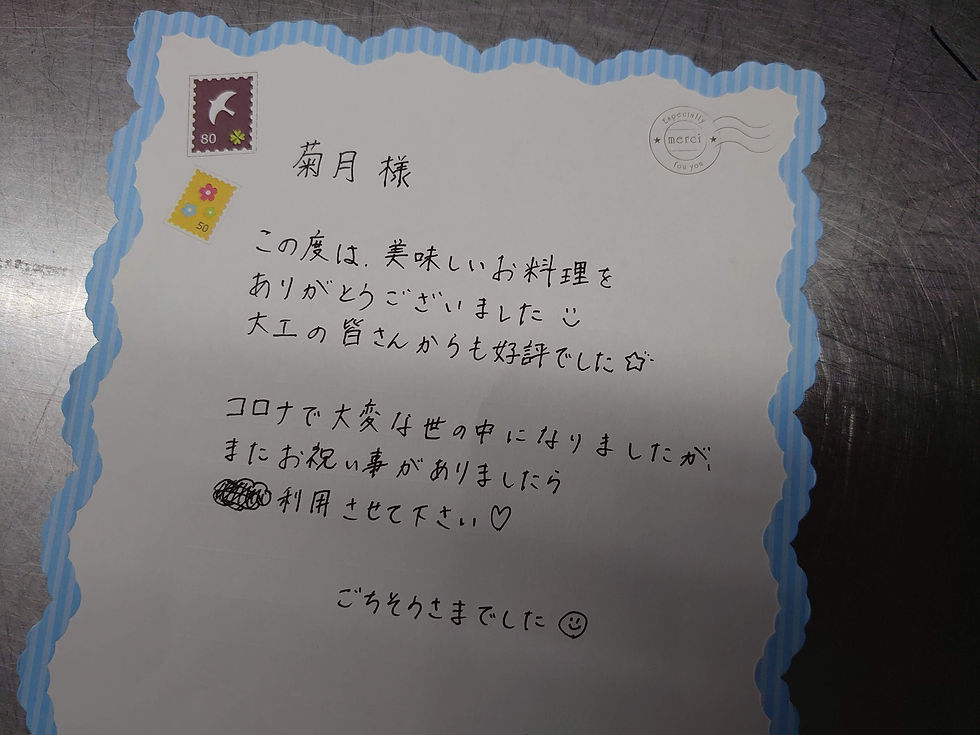 80
50
Especially
merci
for you
菊月 様
この度は、美味しいお料理を
ありがとうございました
大工の皆さんからも好評でした
コロナで大変な世の中になりましたが、
またお祝い事がありましたら
利用させて下さい♡
ごちそうさまでした